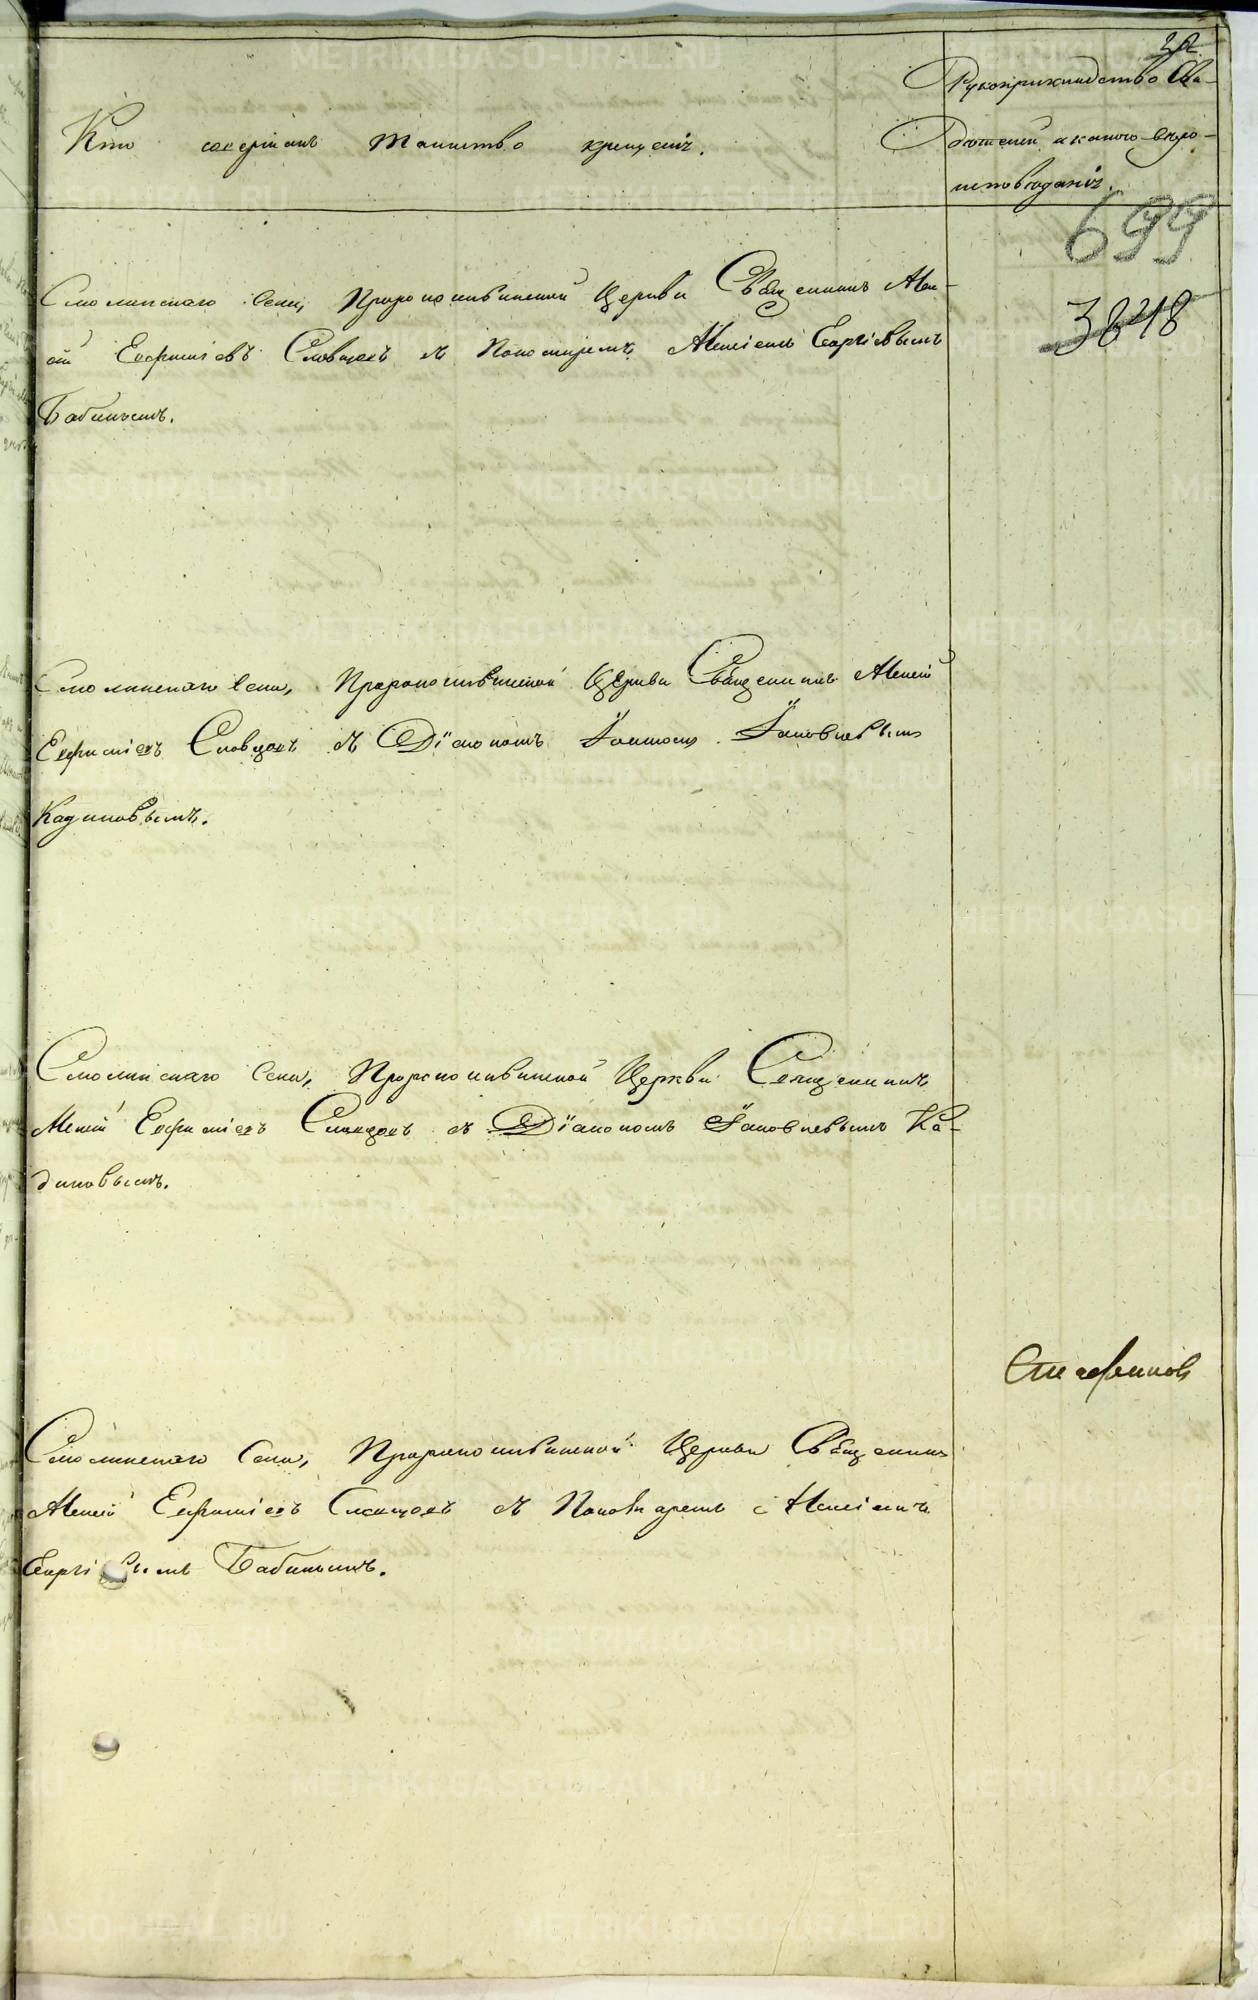 Кто совершалъ таинство крещенія.
Рукоприкладство Сви-
дѣтелей
699
3848
Смолинскаго Села, Пророкоильинской Церкви Священникъ Алек-
Евфиміевъ Словцовъ съ Пономаремъ Алексіемъ Георгіевымъ
Бабинымъ.
Смолинскаго Села, Пророкоильинской Церкви Священникъ Алексій
Евфиміевъ Словцовъ съ Діакономъ Іоанномъ Іаковлевымъ
Кадиновымъ.
Смолинскаго Села, Пророкоильинской Церкви Священникъ
Алексій Евфиміевъ Словцовъ съ Діакономъ Іаковлевымъ Ка-
диновымъ.
Смолинскаго Села, Пророкоильинской Церкви Священникъ
Алексій Евфиміевъ Словцовъ съ Пономаремъ Алексіемъ
Георгіевымъ Бабинымъ.
METRIKI.GASO-URAL.RU